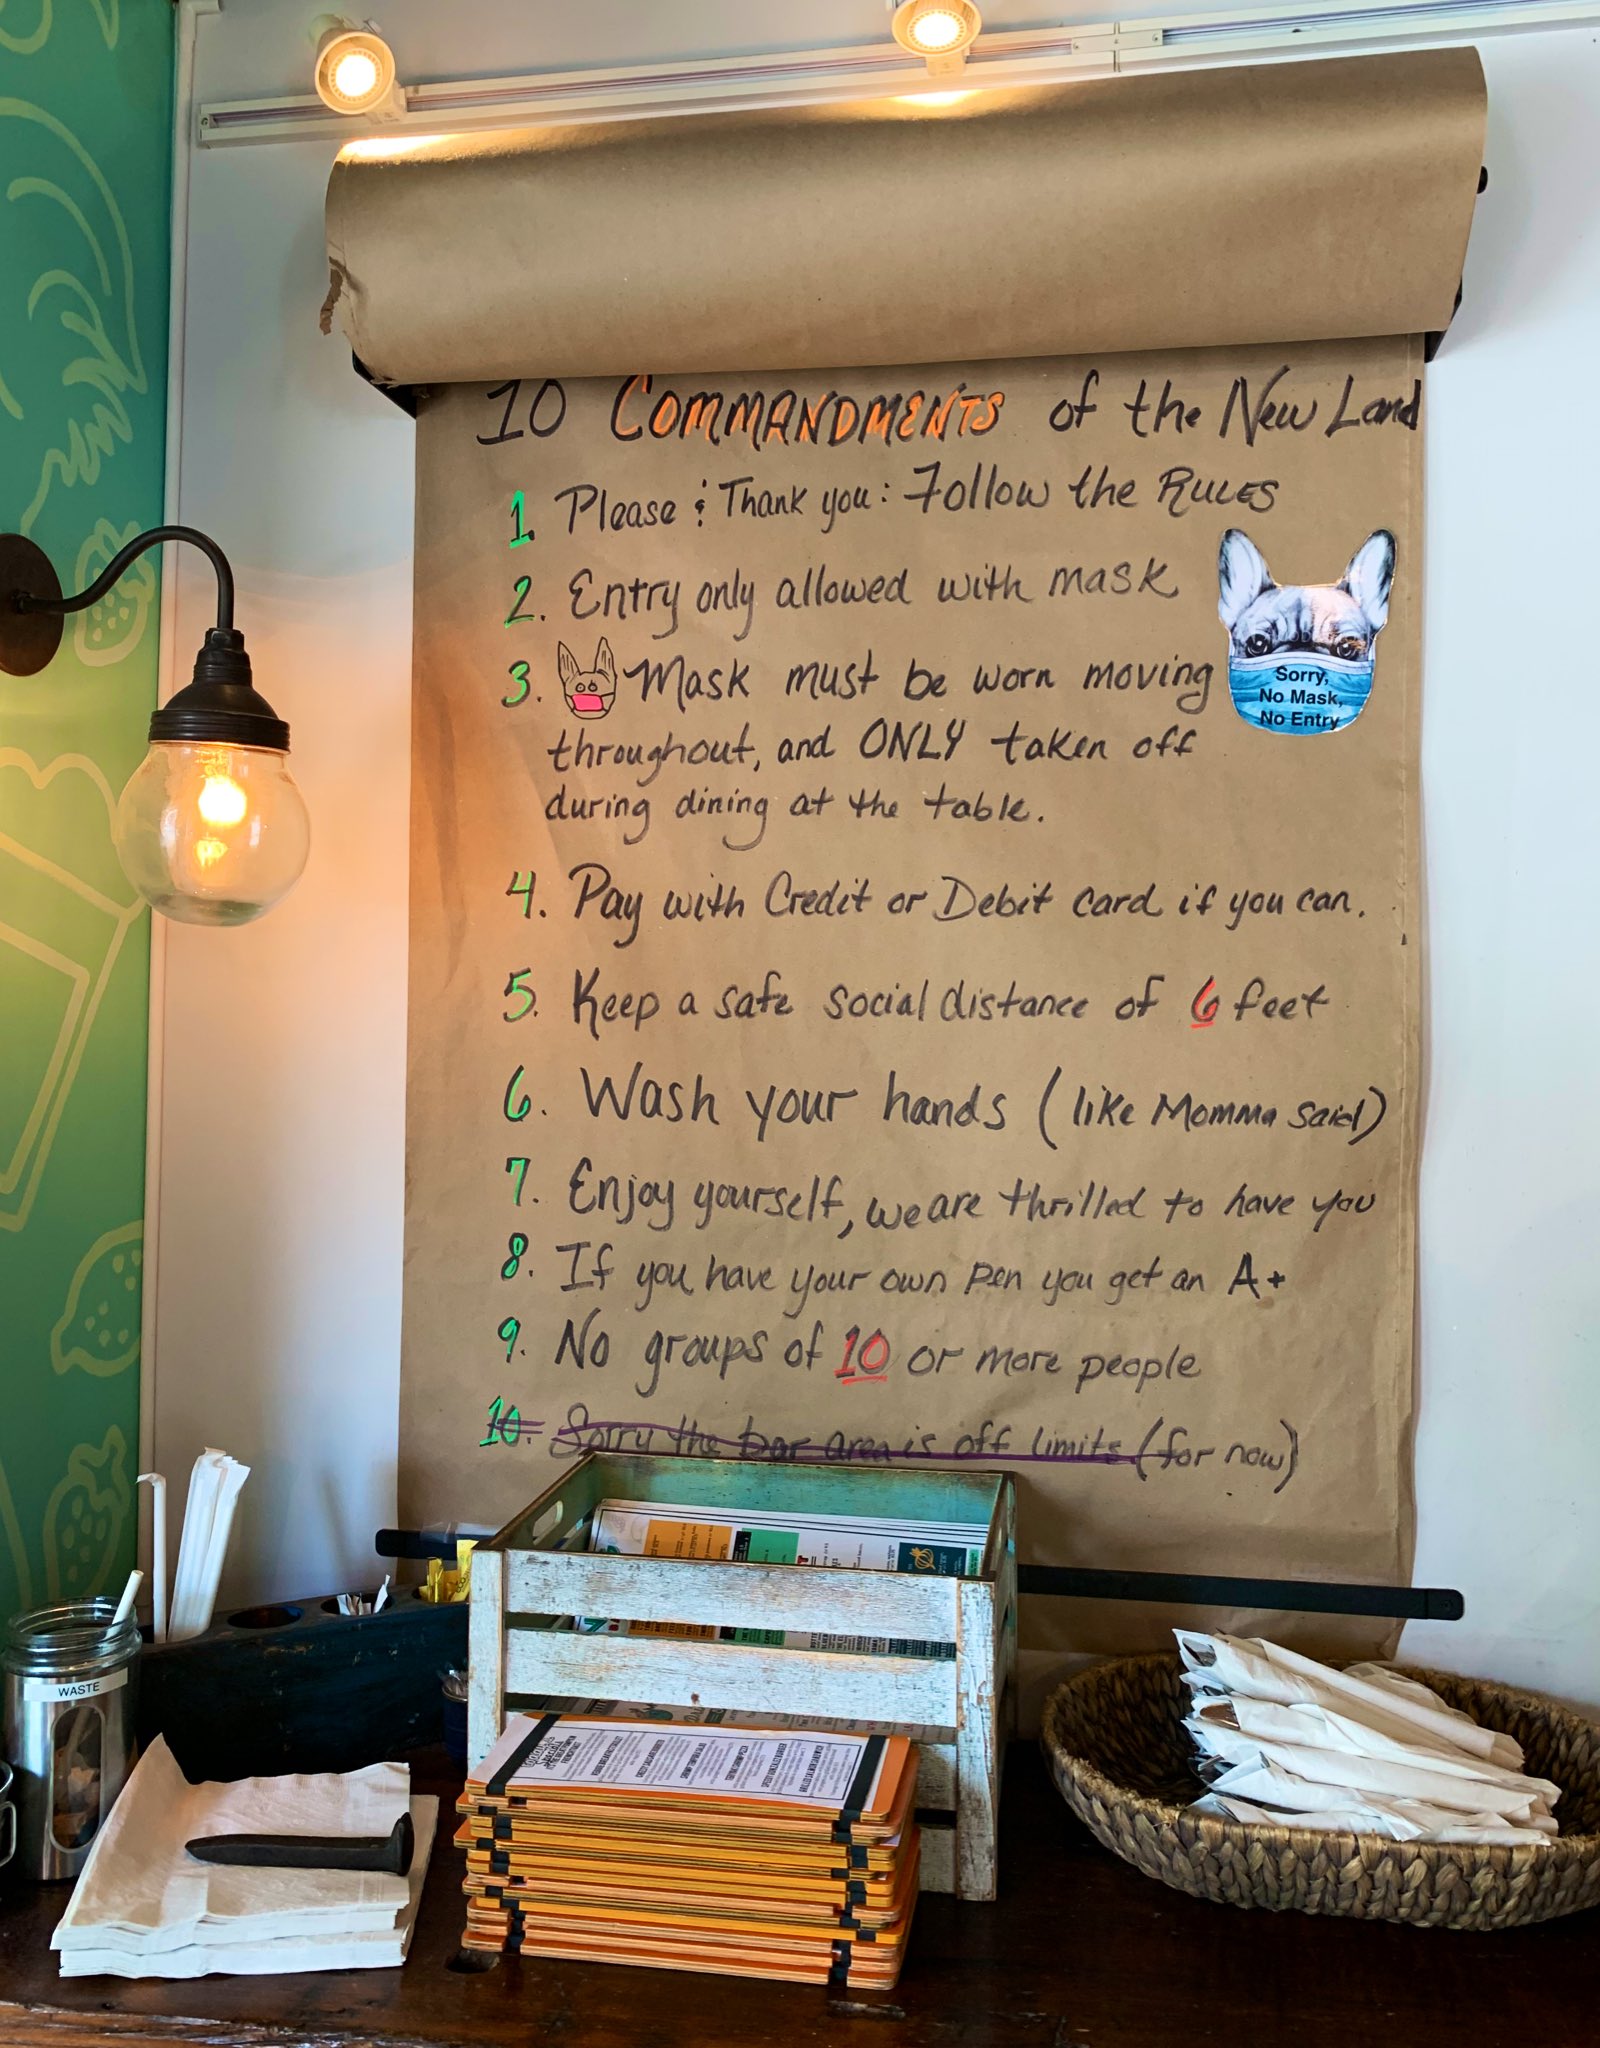 10 COMMANDMENTS of the New Land
1. Please & Thank you: Follow the RULES
2. Entry only allowed with mask
3. Mask must be worn moving
throughout, and ONLY taken off
during dining at the table.
Sorry,
No Mask,
No Entry
4. Pay with Credit or Debit card if you can.
5. Keep a safe social distance of 6 feet
6. Wash your hands (like Momma said)
7. Enjoy yourself, we are thrilled to have you
8. If you have your own pen you get an A+
9. No groups of 10 or more people
10. Sorry the bar area is off limits (for now)
WASTE